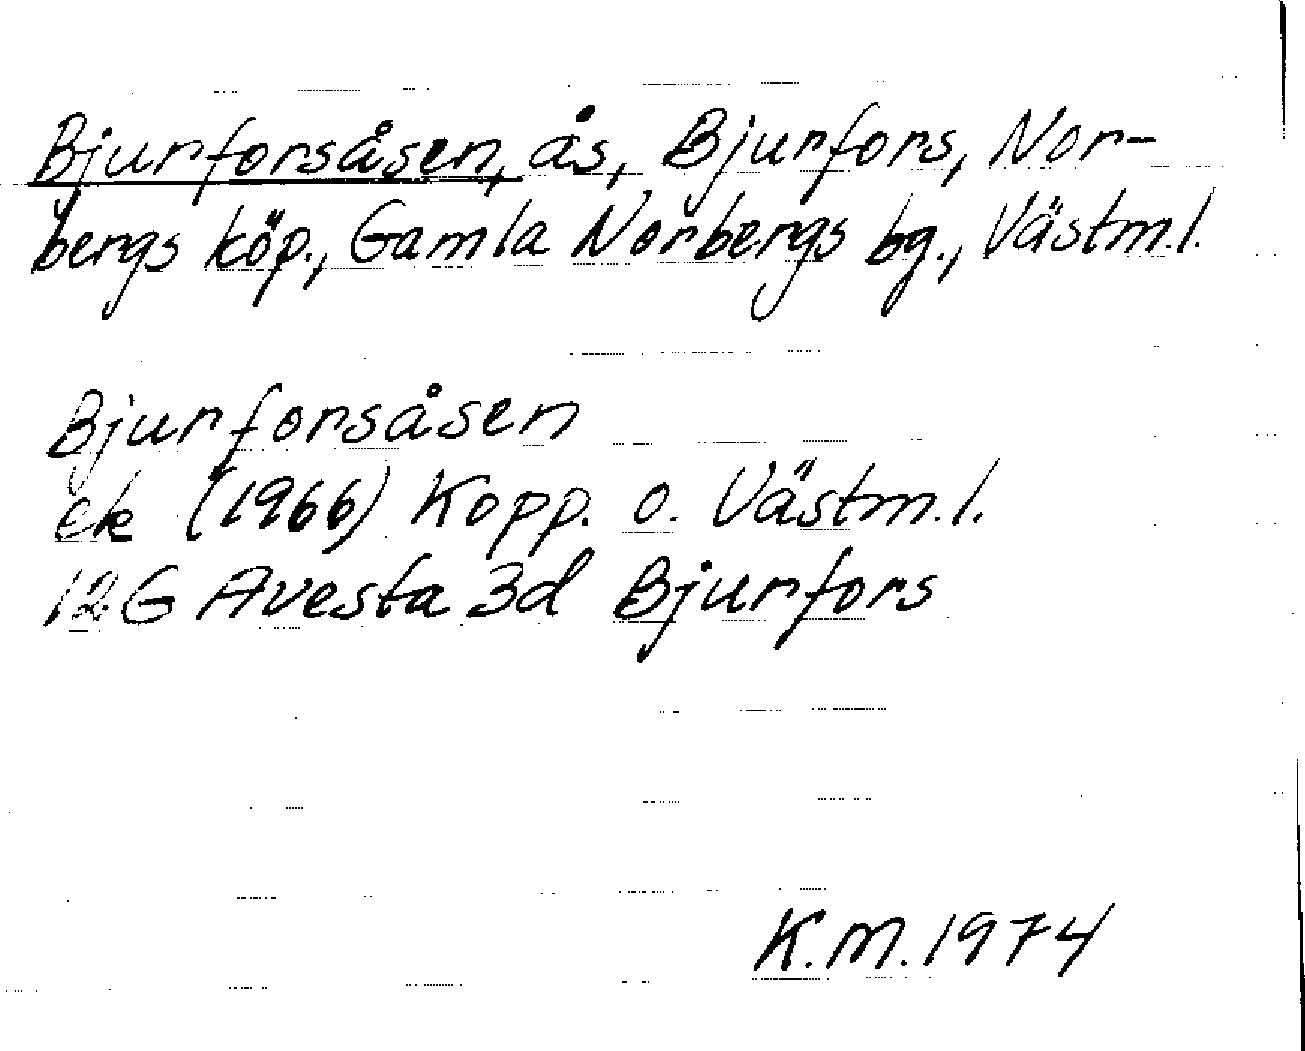 Bjurforsåsen, ås, Bjurfors, Nor-
bergs köp., Gamla Norbergs bg., Västm.l.
Bjurforsåsen
ek (1966) Kopp. o. Västm.l.
12G Avesta 3d Bjurfors
K.M. 1974